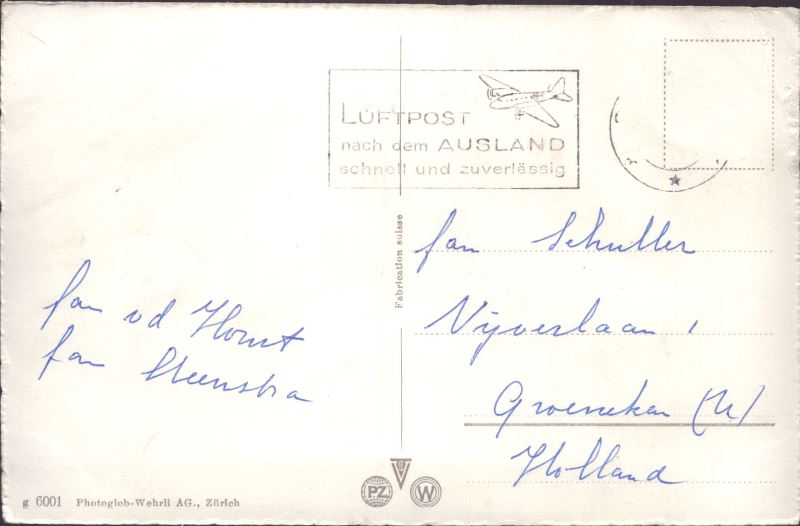 LUFTPOST
nach dem AUSLAND
schnell und zuverlässig
Fabrication suisse
fam v d Horst
fam Steenstra
fam Schuller
Nyverlaan 1
Groenekan (U)
Holland
PZ
W
g 6001 Photoglob-Wehrli AG., Zürich